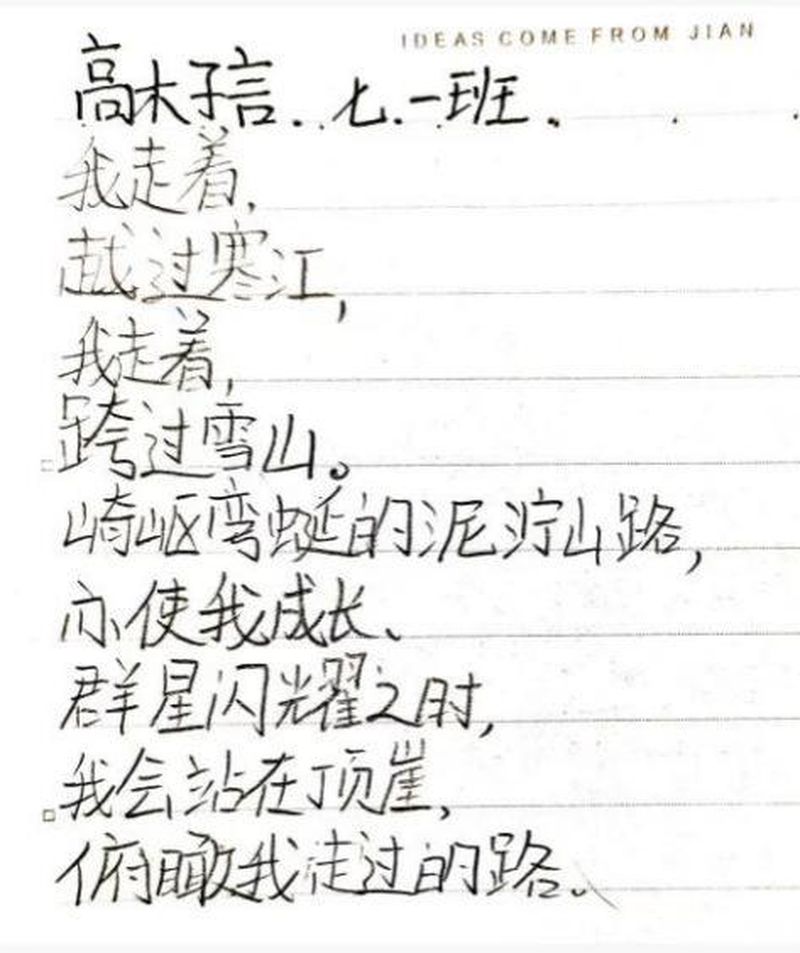 IDEAS COME FROM JIAN
高木子言. . 七.一班.
我走着,
越过寒江,
我走着,
跨过雪山。
崎岖弯蜒的泥泞山路,
亦使我成长、
群星闪耀之时,
我会站在顶崖,
俯瞰我走过的路。